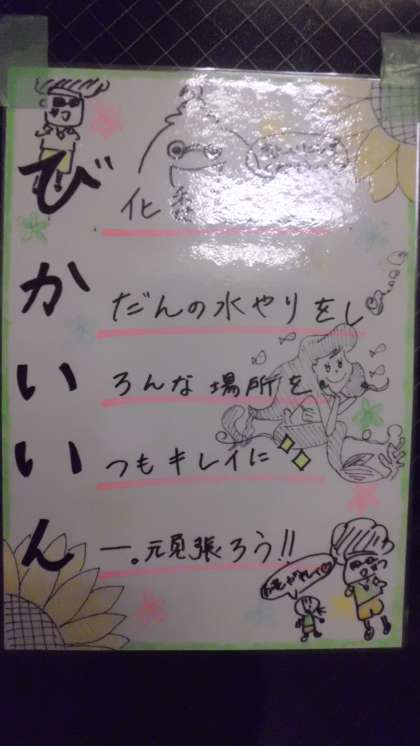 び 化
か だんの水やりをし
い ろんな場所を
い つもキレイに
ん ー。頑張ろう!!